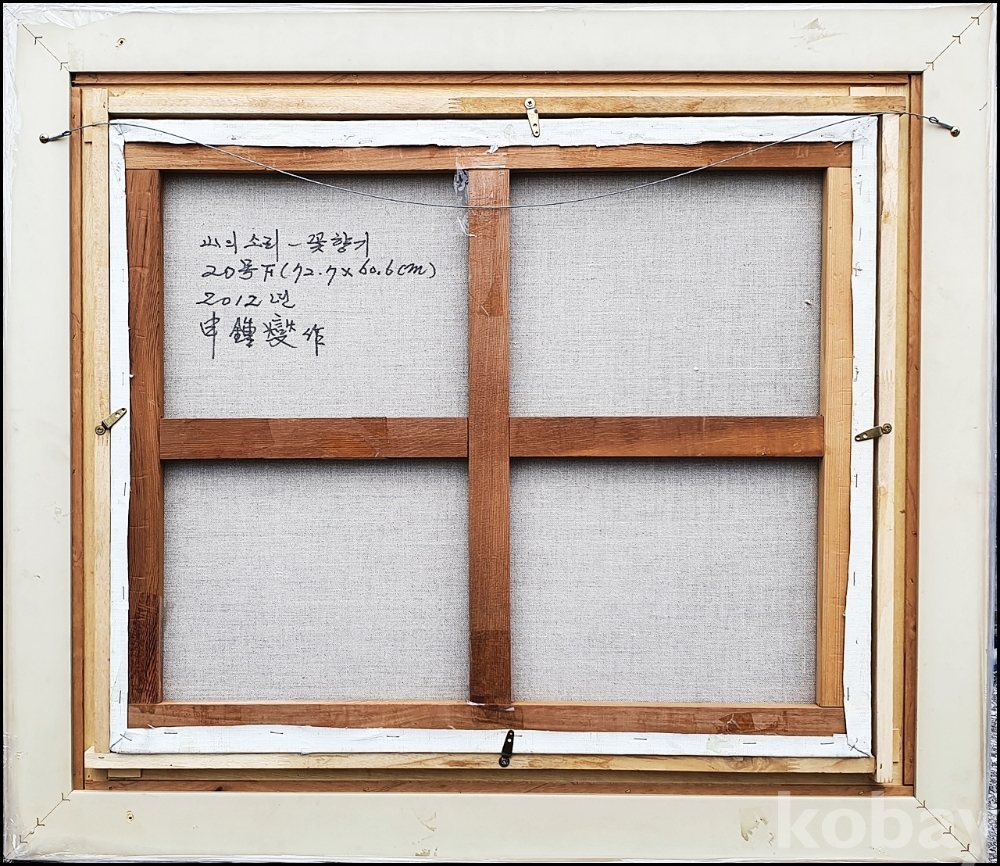 山의 소리 - 꽃향기
20号 F (72.7 x 60.6 cm)
2012 년
申鍾燮 作
kobay